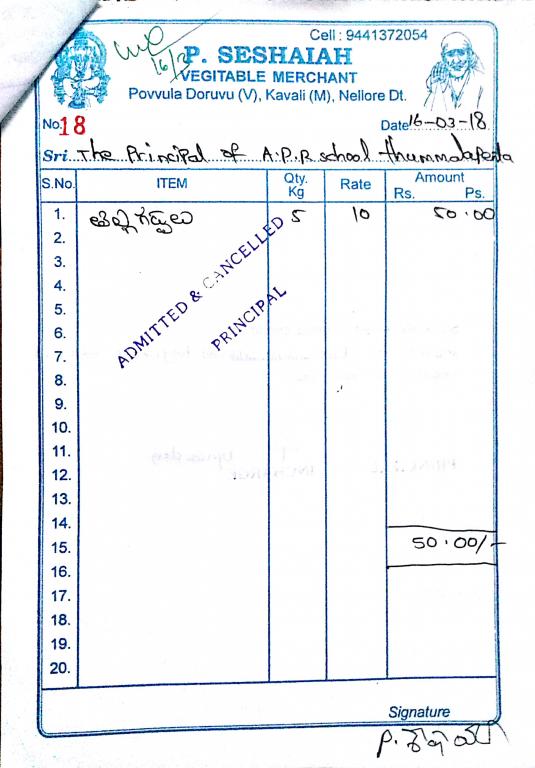 Cell : 9441372054
P. SESHAIAH
VEGITABLE MERCHANT
Povvula Doruvu (V), Kavali (M), Nellore Dt.
16/3
No. 18
Date 16-03-18
Sri. The Principal of A.P.R school thummalapenta
S.No. ITEM Qty. Kg Rate Amount Rs. Ps.
1. 5 10 50.00
2.
3.
4.
5.
6.
7.
8.
9.
10.
11.
12.
13.
14.
15. 50.00/-
16.
17.
18.
19.
20.
ADMITTED & CANCELLED
PRINCIPAL
Signature